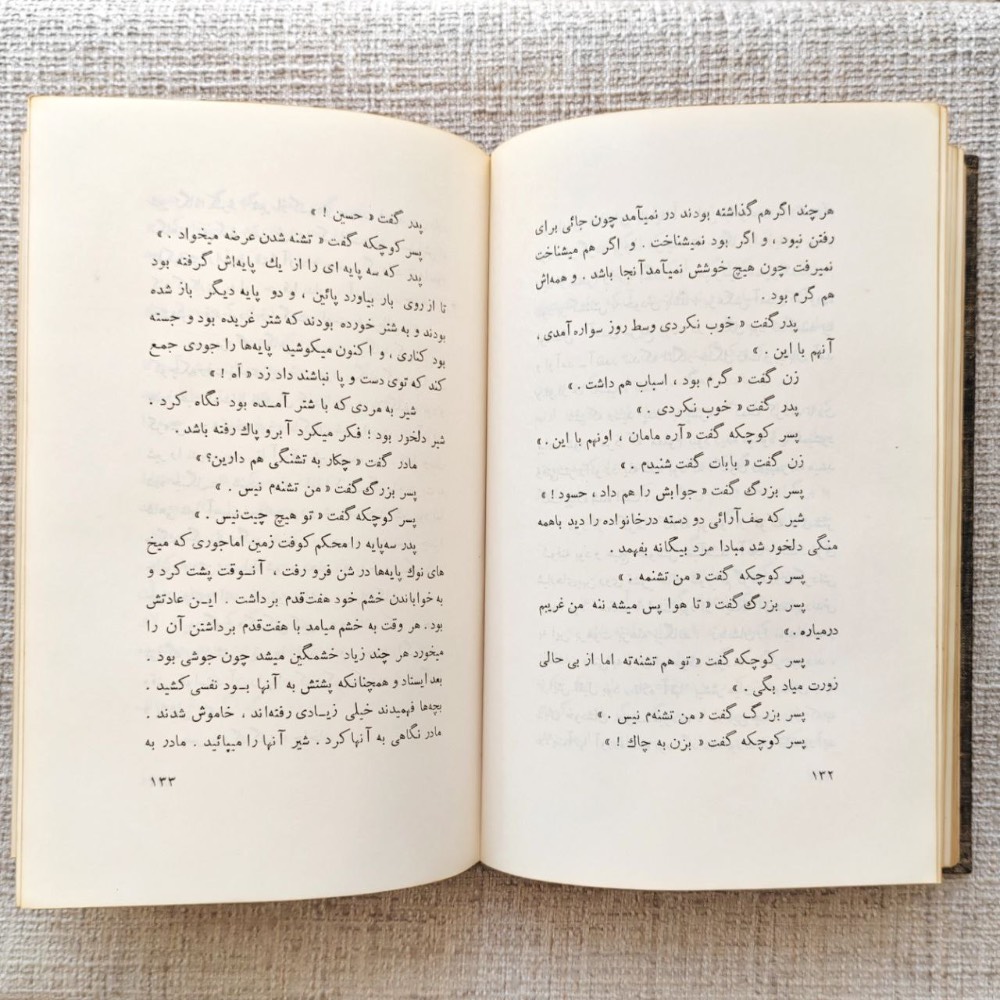 هر چند اگر هم گذاشته بودند در نمیآمد چون جائی برای
رفتن نبود ، و اگر بود نمیشناخت . و اگر هم میشناخت
نمیرفت چون هیچ خوشش نمیآمد آنجا باشد . و همه‌اش
هم گرم بود .
پدر گفت « خوب نکردی وسط روز سواره آمدی ،
آنهم با این . »
زن گفت « گرم بود ، اسباب هم داشت . »
پدر گفت « خوب نکردی . »
پسر کوچکه گفت « آره مامان ، اونهم با این . »
زن گفت « بابات گفت شنیدم . »
پسر بزرگ گفت « جوابش را هم داد ، حسود ! »
شیر که صف‌آرائی دو دسته درخانواده را دید باهمه
منگی دلخور شد مبادا مرد بیگانه بفهمد .
پسر کوچکه گفت « من تشنمه . »
پسر بزرگ گفت « تا هوا پس میشه ننه من غریبم
درمیاره . »
پسر کوچکه گفت « تو هم تشنه‌ته اما از بی حالی
زورت میاد بگی . »
پسر بزرگ گفت « من تشنه‌م نیس . »
پسر کوچکه گفت « بزن به چاك ! »
۱۳۲
پدر گفت « حسین ! »
پسر کوچکه گفت « تشنه شدن عرضه میخواد . »
پدر که سه پایه ای را از یك پایه‌اش گرفته بود
تا از روی بار بیاورد پائین ، و دو پایه دیگر باز شده
بودند و به شتر خورده بودند که شتر غریده بود و جسته
بود کناری ، و اکنون میکوشید پایه‌ها را جوری جمع
کند که توی دست و پا نباشند داد زد « اَه ! »
شیر به مردی که با شتر آمــده بود نگاه کرد .
شیر دلخور بود ؛ فکر میکرد آبرو پاك رفته باشد .
مادر گفت « چکار به تشنگی هم دارین؟ »
پسر بزرگ گفت « من تشنه‌م نیس . »
پسر کوچکه گفت « تو هیچ چیت‌نیس . »
پدر سه‌پایه را محکم کوفت زمین اماجوری که میخ
های نوك پایه‌ها در شن فرو رفت ، آنــوقت پشت کرد و
به خواباندن خشم خود هفت‌قدم برداشت . ایــن عادتش
بود. هر وقت به خشم میامد با هفت‌قدم برداشتن آن را
میخورد هر چند زیاد خشمگین میشد چون جوشی بود .
بعد ایستاد و همچنانکه پشتش به آنها بــود نفسی کشید .
بچه‌ها فهمیدند خیلی زیــادی رفته‌اند ، خاموش شدند .
مادر نگاهی به آنها کرد . شیر آنها را میپائید . مادر به
۱۳۳